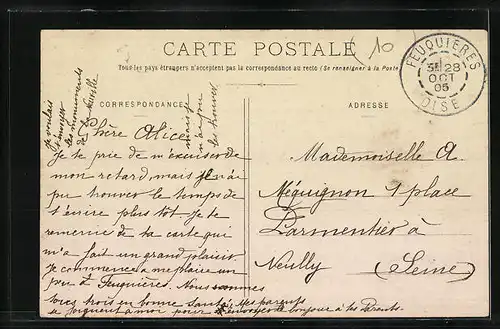 CARTE POSTALE
10
Tous les pays étrangers n'acceptent pas la correspondance au recto (Se renseigner à la Poste)
FEUQUIÈRES
28
OCT
05
OISE
CORRESPONDANCE
ADRESSE
Je voulais
t'envoyer
les monuments
de
mais je
n'ai pu
les trouver
Chère Alice
Je te prie de m'excuser de
mon retard, mais je n'ai
pu trouver le temps de
t'écrire plus tôt. Je te
remercie de ta carte qui
m'a fait un grand plaisir
Je commence a me plaire un
peu à Feuquières. Nous sommes
tous trois en bonne santé. Mes parents
se joignent à moi pour t'envoyer le bonjour à tes Parents.
Mademoiselle A.
Méquignon 1 place
Parmentier à
Neuilly (Seine)